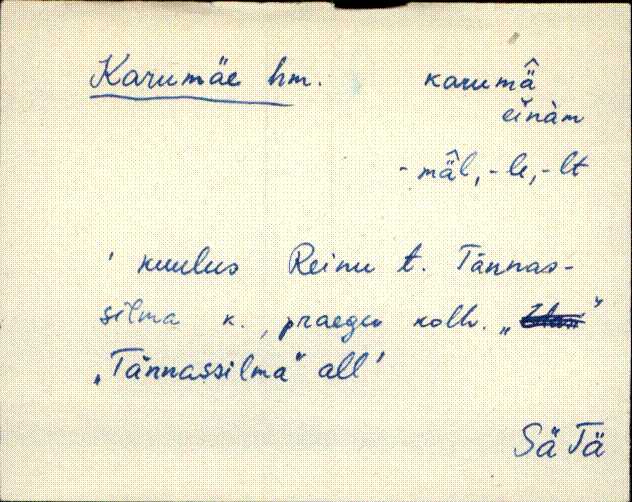 Karumäe hm. karumä̂
einàm
- mä̂l, - le, - lt
' kuulus Reinu t. Tännas-
silma k., praegu kolh. „ "
„Tännassilma" all'
SäTä